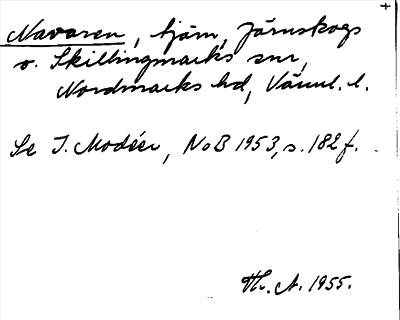 +
Navaren, tjärn, Järnskogs
o. Skillingmarks snr,
Nordmarks hd, Värml. l.
Se I. Modéer, NoB 1953, s. 182 f.
Th. A. 1955.